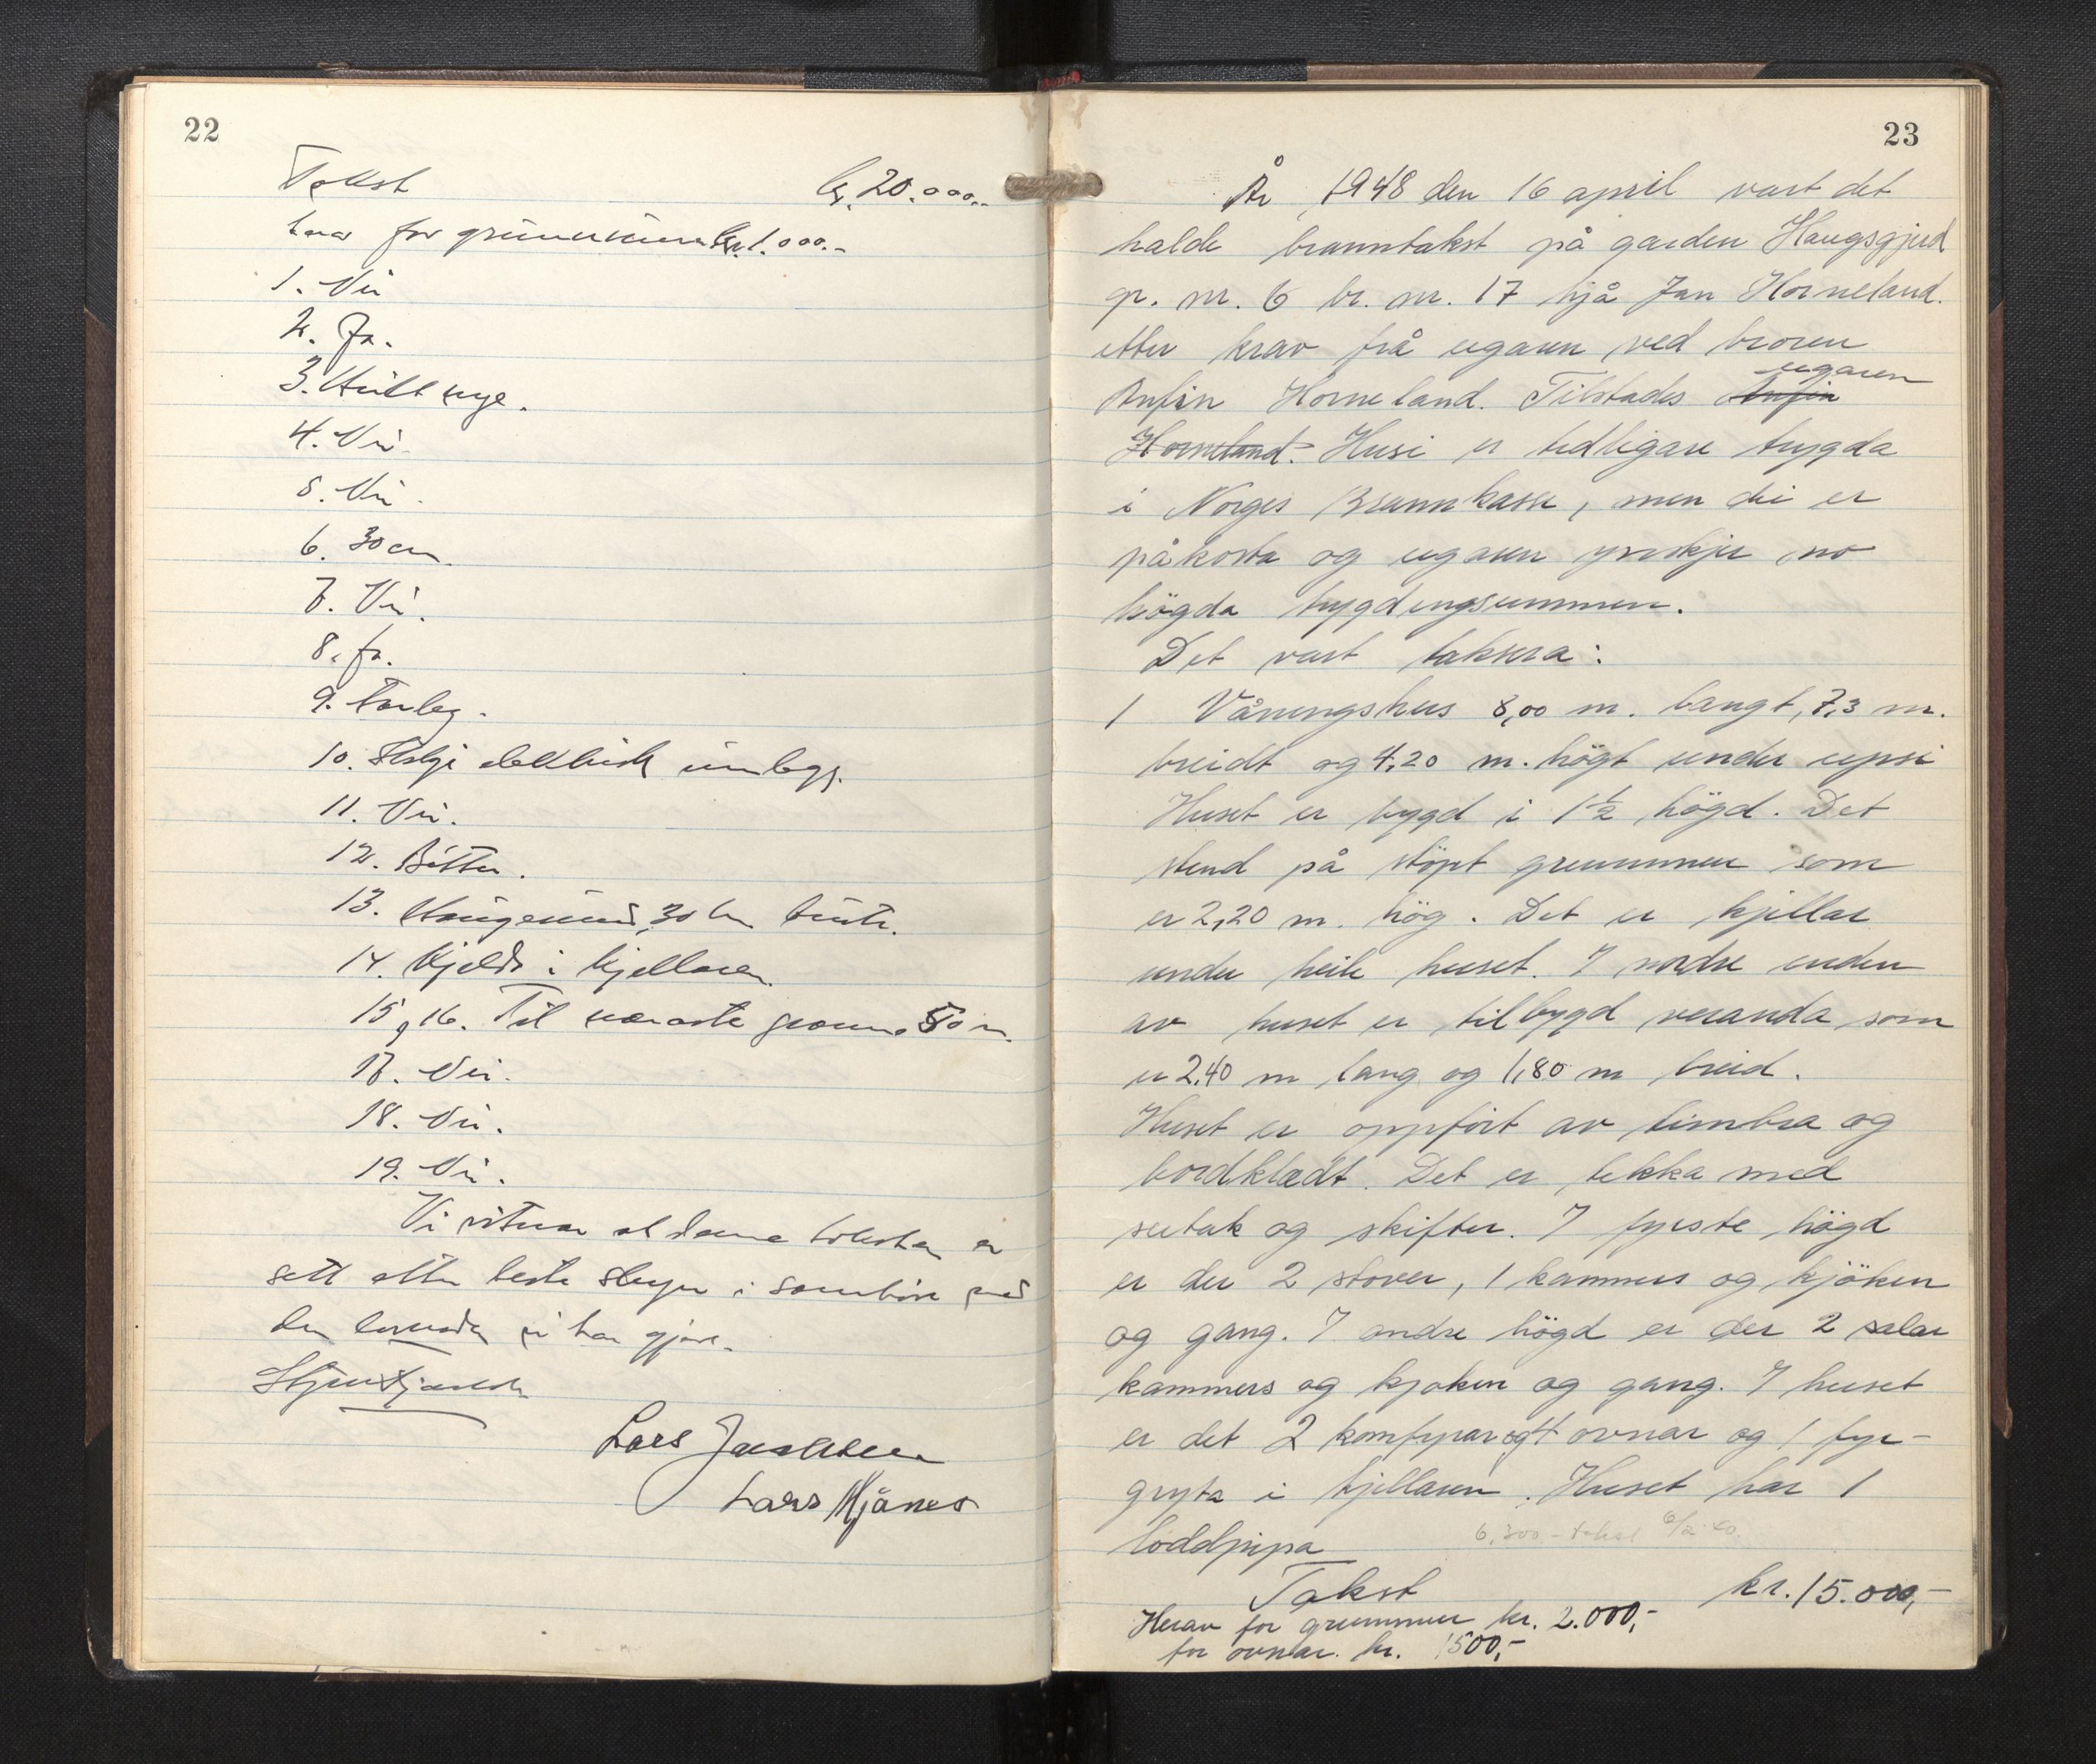 22
Takst kr. 20.000.-
herav for grunnmuren kr. 1.000.-
1. Nei
2. Ja.
3. Heilt nye.
4. Nei.
5. Nei.
6. 30 cm.
7. Nei.
8. Ja.
9. Farleg.
10. Følgje elektrisk innlegg.
11. Nei.
12. Bøtter.
13. Haugesund, 30 km
14. Kjelde i kjellaren.
15 og 16. Til næraste granne 50 m.
17. Nei.
18. Nei.
19. Nei.
Vi vitnar at denne taksten er
sett etter beste skjøn i samhøve med
den lovnaden vi har gjeve.
Lars
Lars Mjånes
23
År 1948 den 16 april vart det
halde branntakst på garden Haugsgjerd
gr. nr. 6 br. nr. 17 hjå Jan Horneland.
etter krav frå eigaren ved broren
Anfin Horneland. Tilstades Anfin eigaren
Horneland. Husi er tidligare trygda
i Norges Brannkasse, men dei er
påkosta og eigaren ynskjer no
högda trygdingsummen.
Det vart taksera:
1 Våningshus 8,00 m. langt, 7,3 m.
breidt og 4,20 m. högt under upsi
Huset er bygd i 1½ högd. Det
stend på stöpt grunnmur som
er 2,20 m. hög. Det er kjellar
under heile huset. I nordre enden
av huset er tilbygd veranda som
er 2,40 m lang og 1,80 m breid.
Huset er oppfört av timbra og
bordklædt. Det er tekka med
sutak og skifter. I fyrste högd
er der 2 stover, 1 kammers og kjöken
og gang. I andre högd er der 2 salar
kammers og kjöken og gang. I huset
er det 2 komfyrar og 4 ovnar og 1 fyr-
gryta i kjellaren. Huset har 1
loddpipa
6,300 - takst 6/2 40.
Takst kr. 15.000,-
Herav for grunnmur kr. 2.000,-
for ovnar. kr. 1500,-